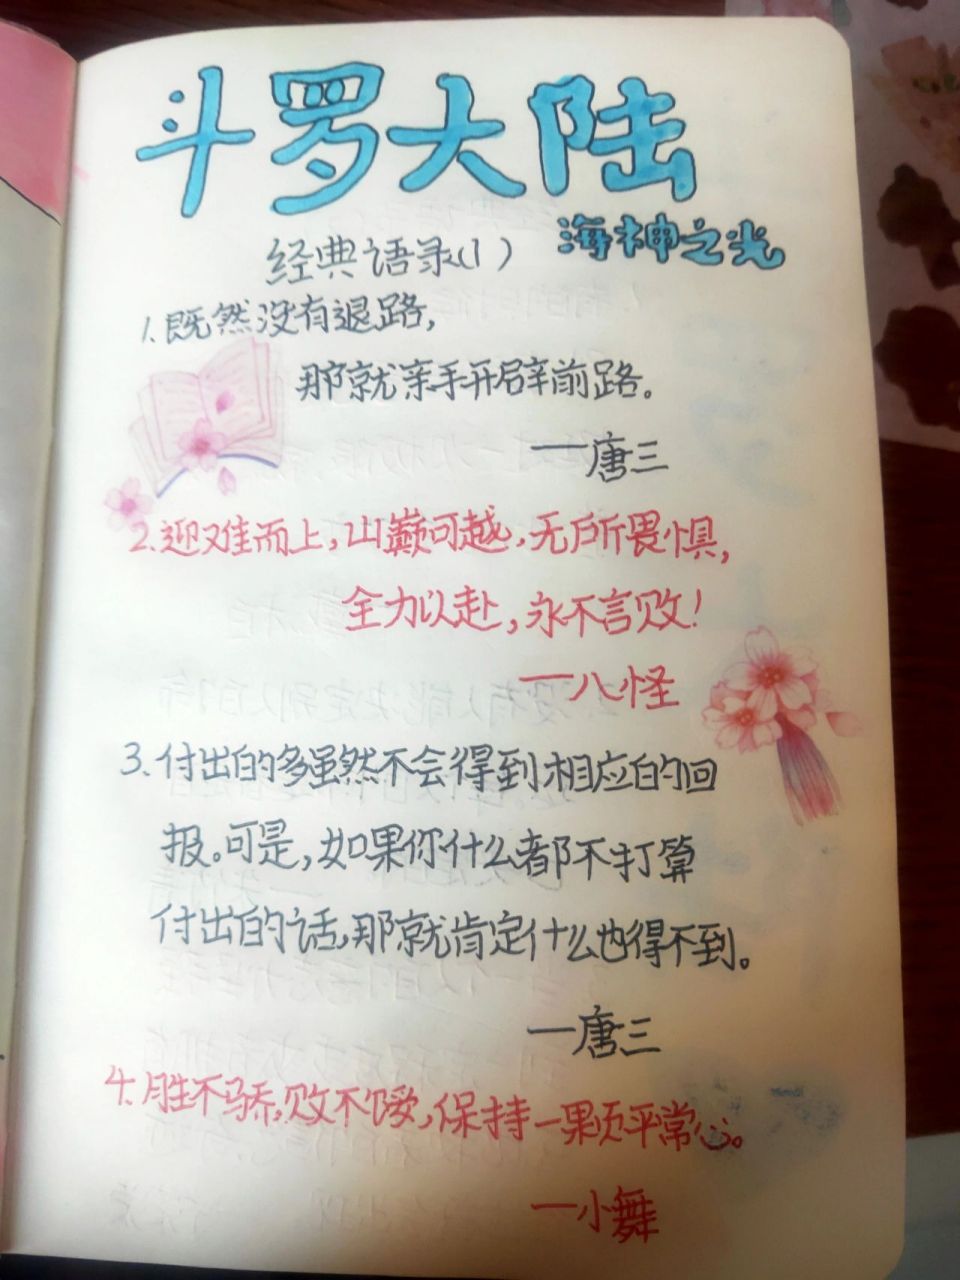 斗罗大陆
海神之光
经典语录(1)
1.既然没有退路,
那就亲手开辟前路。
——唐三
2.迎难而上,山巅可越,无所畏惧,
全力以赴,永不言败!
——八怪
3.付出的多虽然不会得到相应的回
报。可是,如果你什么都不打算
付出的话,那就肯定什么也得不到。
—唐三
4.胜不骄,败不馁,保持一颗平常心。
—小舞